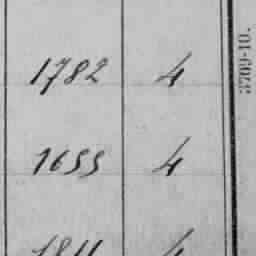 1782 4
1655 4
1811 4